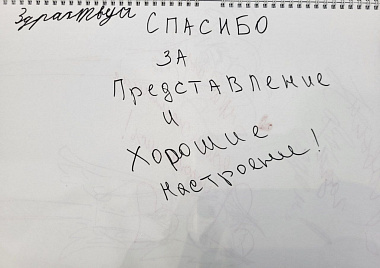 Здраствуй
СПАСИБО
ЗА
ПРЕДСТАВЛЕНИЕ
И
ХОРОШИЕ
НАСТРОЕНИЕ!